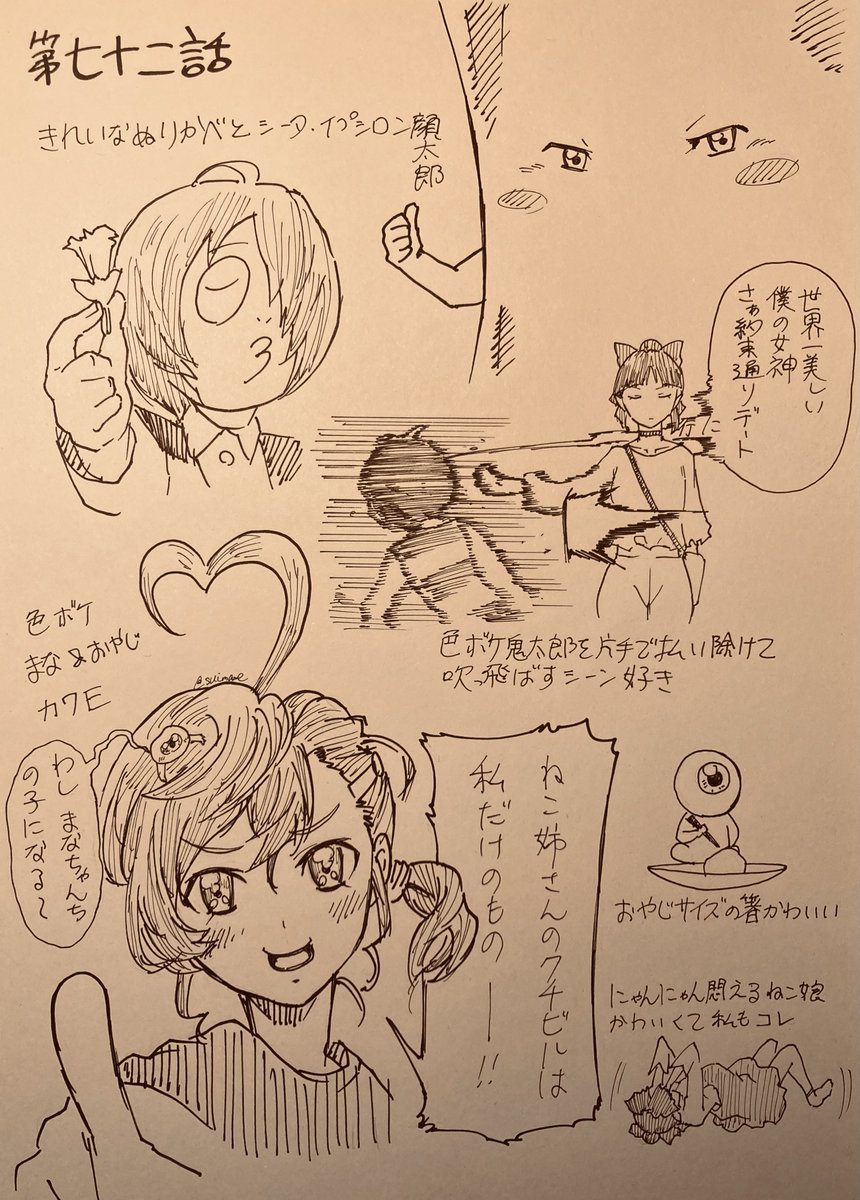 第七十二話
きれいなぬりかべとシータ・イプシロン顔太郎
世界一美しい
僕の女神
さぁ約束通りデート
行こ
色ボケ鬼太郎を片手で払い除けて
吹っ飛ばすシーン好き
色ボケ
まな&おやじ
カワE
@_suimame
わし まなちゃんち
の子になる〜
ねこ姉さんのクチビルは
私だけのものー!!
おやじサイズの箸かわいい
にゃんにゃん悶えるねこ娘
かわいくて私もコレ